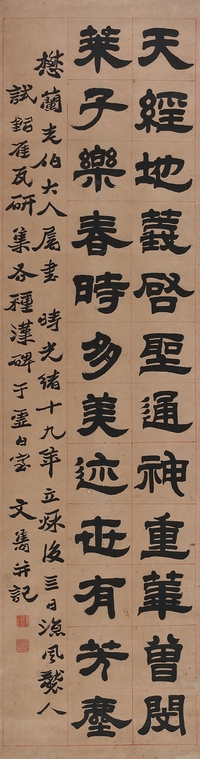 天經地義啓聖通神重華曾閔
萊子樂春時多美迹世有芳塵
懋蘭老伯大人屬書 時光緒十九年立秋後三日漁風髯人
試銅雀瓦研集各種漢碑于靈白室 文雋并記